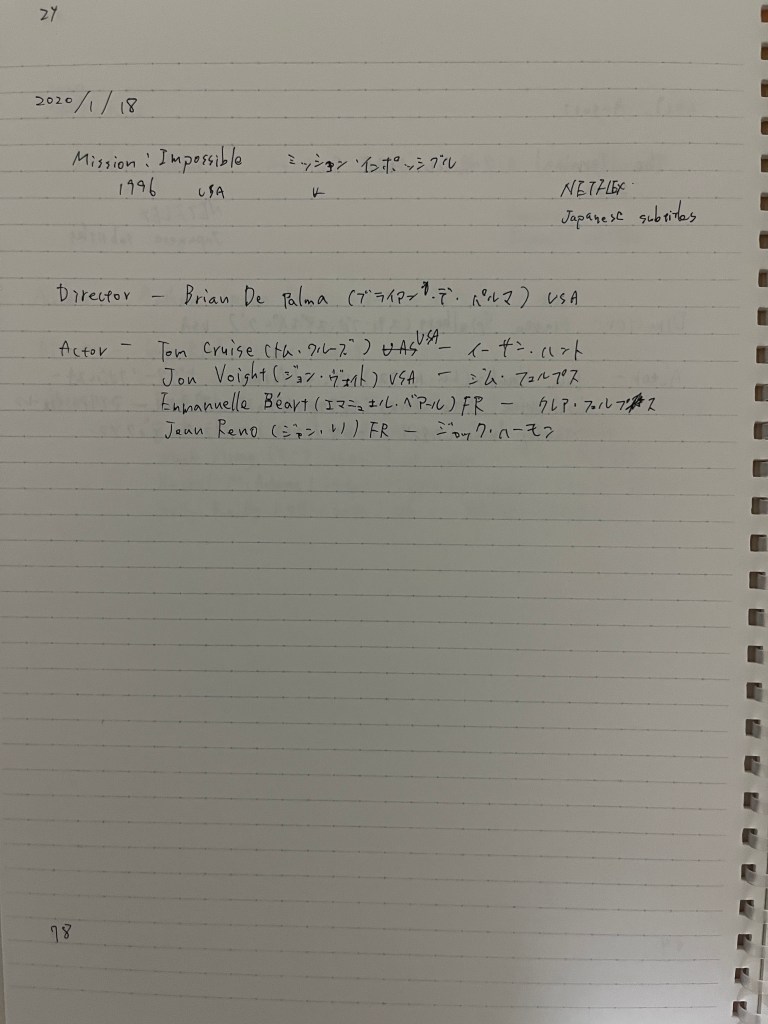 24
2020/1/18
Mission: Impossible ミッション・インポッシブル
1996 USA NETFLEX
Japanese subtitles
Director — Brian De Palma (ブライアン・デ・パルマ) USA
Actor — Tom Cruise (トム・クルーズ) USA — イーサン・ハント
Jon Voight (ジョン・ヴォイト) USA — ジム・フェルプス
Emmanuelle Béart (エマニュエル・ベアール) FR — クレア・フェルプス
Jean Reno (ジャン・レノ) FR —
78